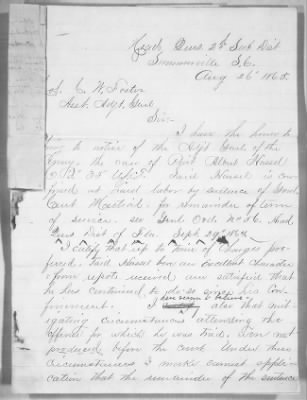 Head Qurs. 2d Sub Dist
Summerville S.C.
Aug 26 1865
C. W. Foster
Asst. Adjt. Genl
Sir:-
I have the honor to
to notice of the Adjt Genl of the
Army, the case of Albert
35" Said is con-
at hard labor by sentence of Genl
Court Martial. for remainder of term
of service. see Genl Ords No 26. Head
Qurs Dist of Fla Sept. 29" 1864
I certify that up to time of charges pre-
ferred. Said had an Excellent Character
from reports received am satisfied that
he has continued to do so since his con-
finement. I am aware & believe also that mit-
igating circumstances attending the
offense for which he was tried, was not
produced before the court. Under these
circumstances I make earnest appli-
cation that the remainder of the sentence